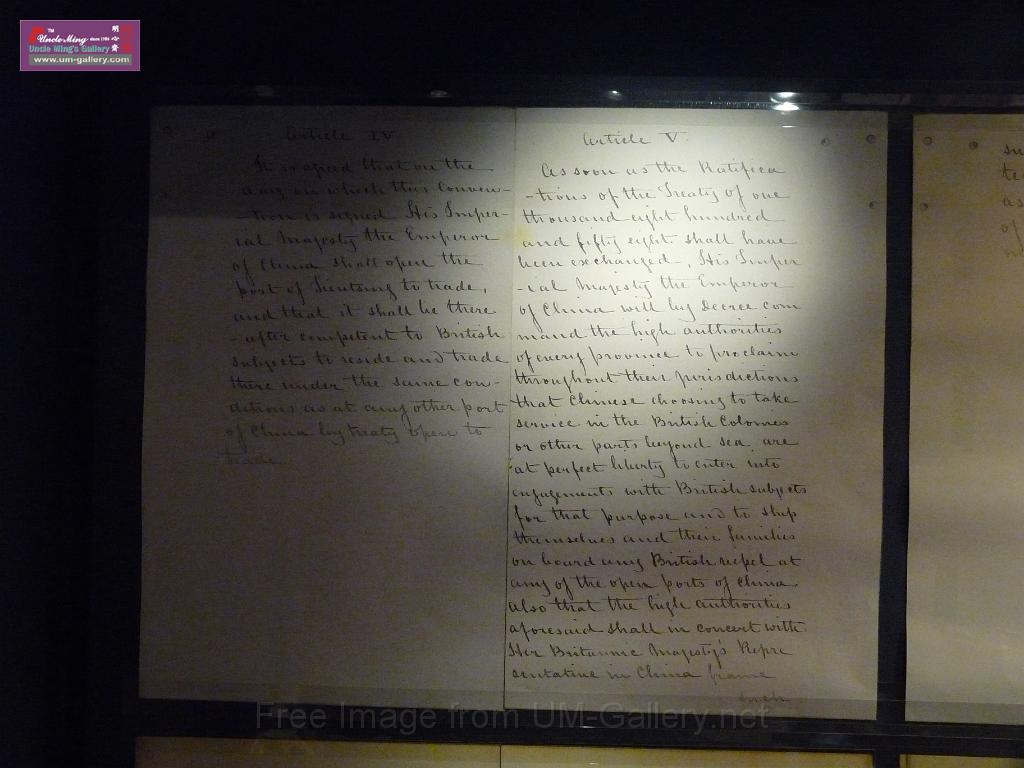 TM
Uncle Ming since 1984
Uncle Ming's Gallery
www.um-gallery.com
Article IV
It is agreed that on the
day on which this Conven-
-tion is signed His Imper-
ial Majesty the Emperor
of China shall open the
port of Tientsing to trade,
and that it shall be there
-after competent to British
subjects to reside and trade
there under the same con-
ditions as at any other port
of China by treaty open to
trade
Article V.
As soon as the Ratifica
-tions of the Treaty of one
thousand eight hundred
and fifty eight shall have
been exchanged, His Imper
-ial Majesty the Emperor
of China will by Decree com
mand the high authorities
of every province to proclaim
throughout their jurisdictions
that Chinese choosing to take
service in the British Colonies
or other parts beyond sea are
at perfect liberty to enter into
engagements with British subjects
for that purpose and to ship
themselves and their families
on board any British vessel at
any of the open ports of China
also that the high authorities
aforesaid shall in concert with
Her Britannic Majesty's Repre
sentative in China frame
such
su
te
as
of
Free Image from UM-Gallery.net